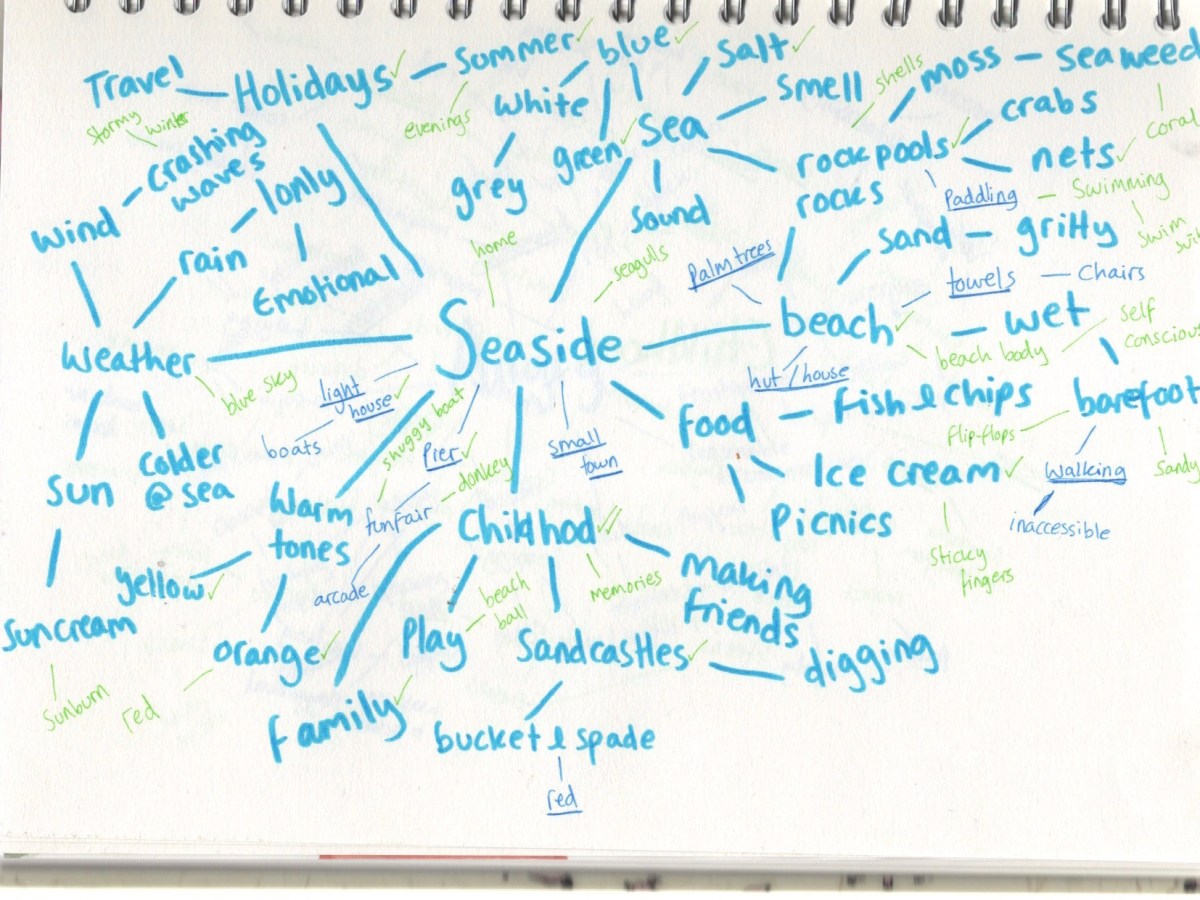 Travel
Holidays
Summer
blue
Salt
Smell
shells
moss
seaweed
stormy
winter
evenings
white
green
Sea
crabs
coral
crashing
waves
lonly
grey
rockpools
nets
wind
rain
Emotional
Sound
rocks
Paddling
Swimming
Swim
home
seagulls
palm trees
sand
gritty
towels
Chairs
Weather
Seaside
beach
wet
self
conscious
beach body
blue sky
light
house
boats
shuggy boat
Pier
small
town
hut / house
food
fish & chips
barefoot
flip-flops
Sun
colder
@ sea
Warm
tones
funfair
donkey
Ice cream
walking
Sandy
inaccessible
Picnics
Sticky
fingers
Childhod
yellow
arcade
beach
ball
memories
making
friends
Suncream
orange
Play
Sandcastles
digging
Sunburn
red
family
bucket & spade
red